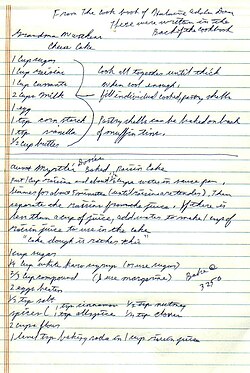 From the Cook book of
These were written in the
Back of the cookbook
Grandma
Cheese Cake
1 cup sugar
1 cup raisins
1 cup currants
2 cups milk
1 egg
1 tsp. corn starch
1 tsp. vanilla
1/2 cup butter
Cook all together until thick
when cool enough,
fill individual cooked pastry shells
Pastry shells can be baked on back
of muffin tins.
Aunt Myrtle's Boiled Raisin Cake
put 1 cup raisins and about 2 cups water in sauce pan,
simmer for about 5 minutes (until raisins are tender). Then
separate the raisins from the juice. If there is
less than a cup of juice, add water to make 1 cup of
raisin juice to use in the cake
"Cake dough is rather thin"
1 cup sugar
1/4 cup white karo syrup (or use sugar)
2/3 cup compound (I use margarine)
2 eggs beaten
1/2 tsp salt
spices (1 tsp cinnamon 1/2 tsp nutmeg
1 tsp allspice 1/2 tsp cloves
2 cups flour
1 level tsp baking soda in 1 cup raisin juice
Bake @
325°